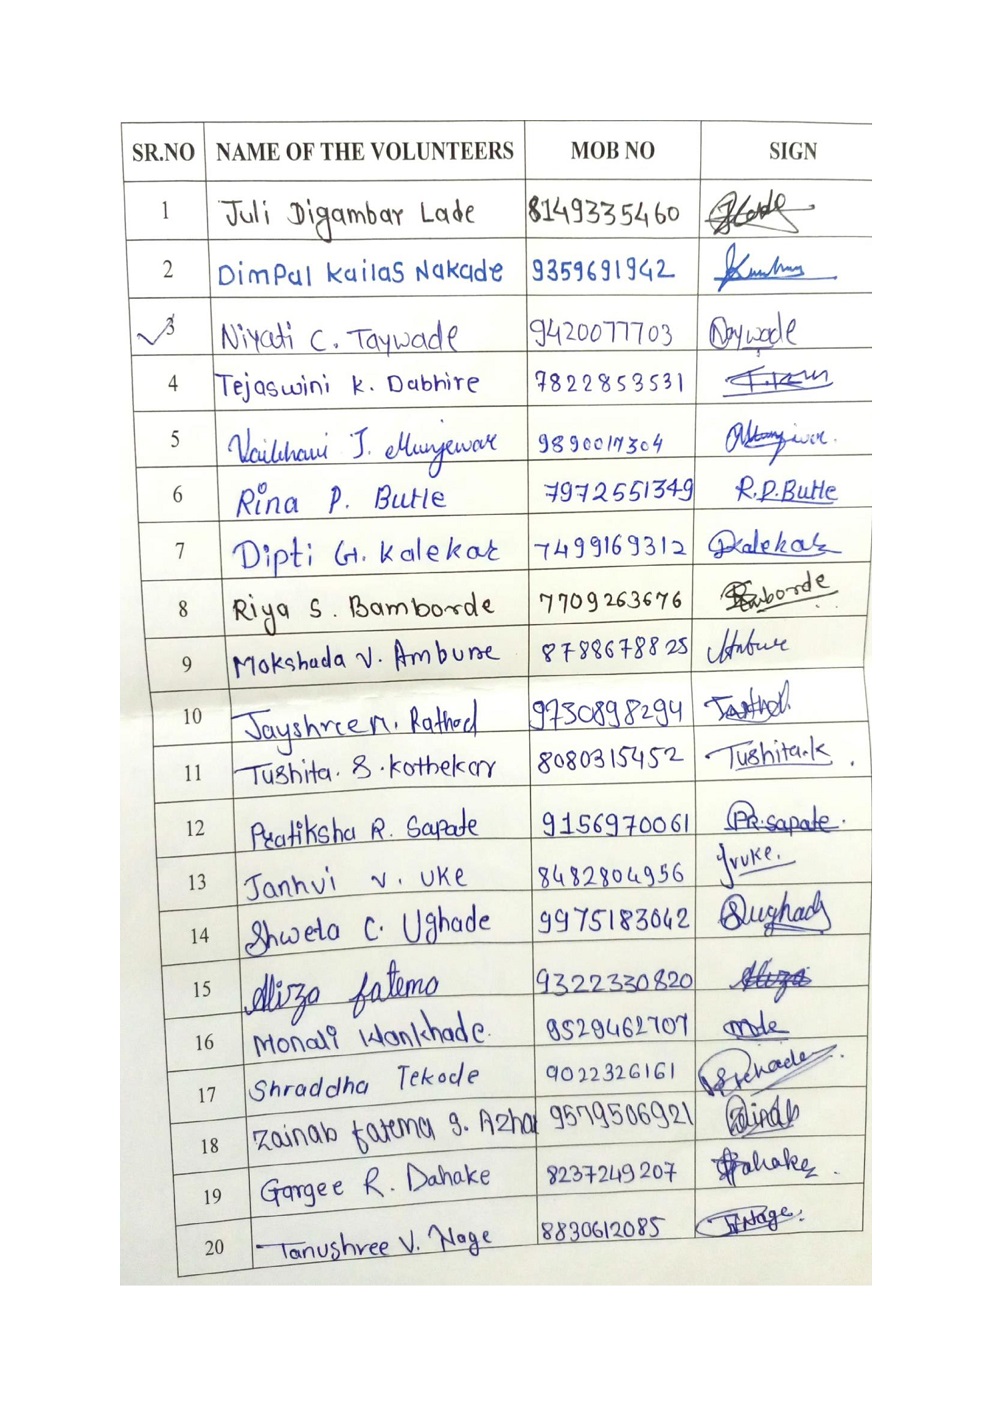 SR.NO NAME OF THE VOLUNTEERS MOB NO SIGN
1 Juli Digambar Lade 8149335460
2 Dimpal Kailas Nakade 9359691942
3 Niyati C. Taywade 9420077703 Taywade
4 Tejaswini K. Dabhire 7822853531
5 Vaibhavi J. Munjewar 9890017304
6 Rina P. Butle 7972551349 R.P.Butle
7 Dipti G. Kalekar 7499169312 Dkalekar
8 Riya S. Bamborde 7709263676
9 Mokshada V. Ambure 8788678825
10 Jayshree N. Rathod 9730898294
11 Tushita. S. Kothekar 8080315452 Tushita.K.
12 Pratiksha R. Sapate 9156970061 PR.sapate.
13 Janhvi V. Uke 8482804956 Jvuke.
14 Shweta C. Ughade 9975183042
15 Aliza fatema 9322330820 Aliza
16 Monali Wankhade. 9529462707
17 Shraddha Tekode 9022326161
18 Zainab fatema S. Azhar 9579506921 Zainab
19 Gargee R. Dahake 8237249207
20 Tanushree V. Nage 8830612085